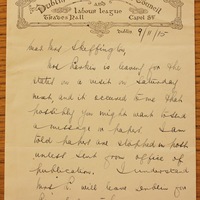 Dublin Council
and
Labour League
Trades Hall Capel St
Dublin 9/11/15
Dear Mrs Skeffington
Mrs is leaving for the
States on a visit on Saturday
next, and it occurred to me that
possibly you might want to send
a message or papers. I am
told papers are stopped in post
unless sent from office of
publication. I understand
Mrs P. will leave Dublin for